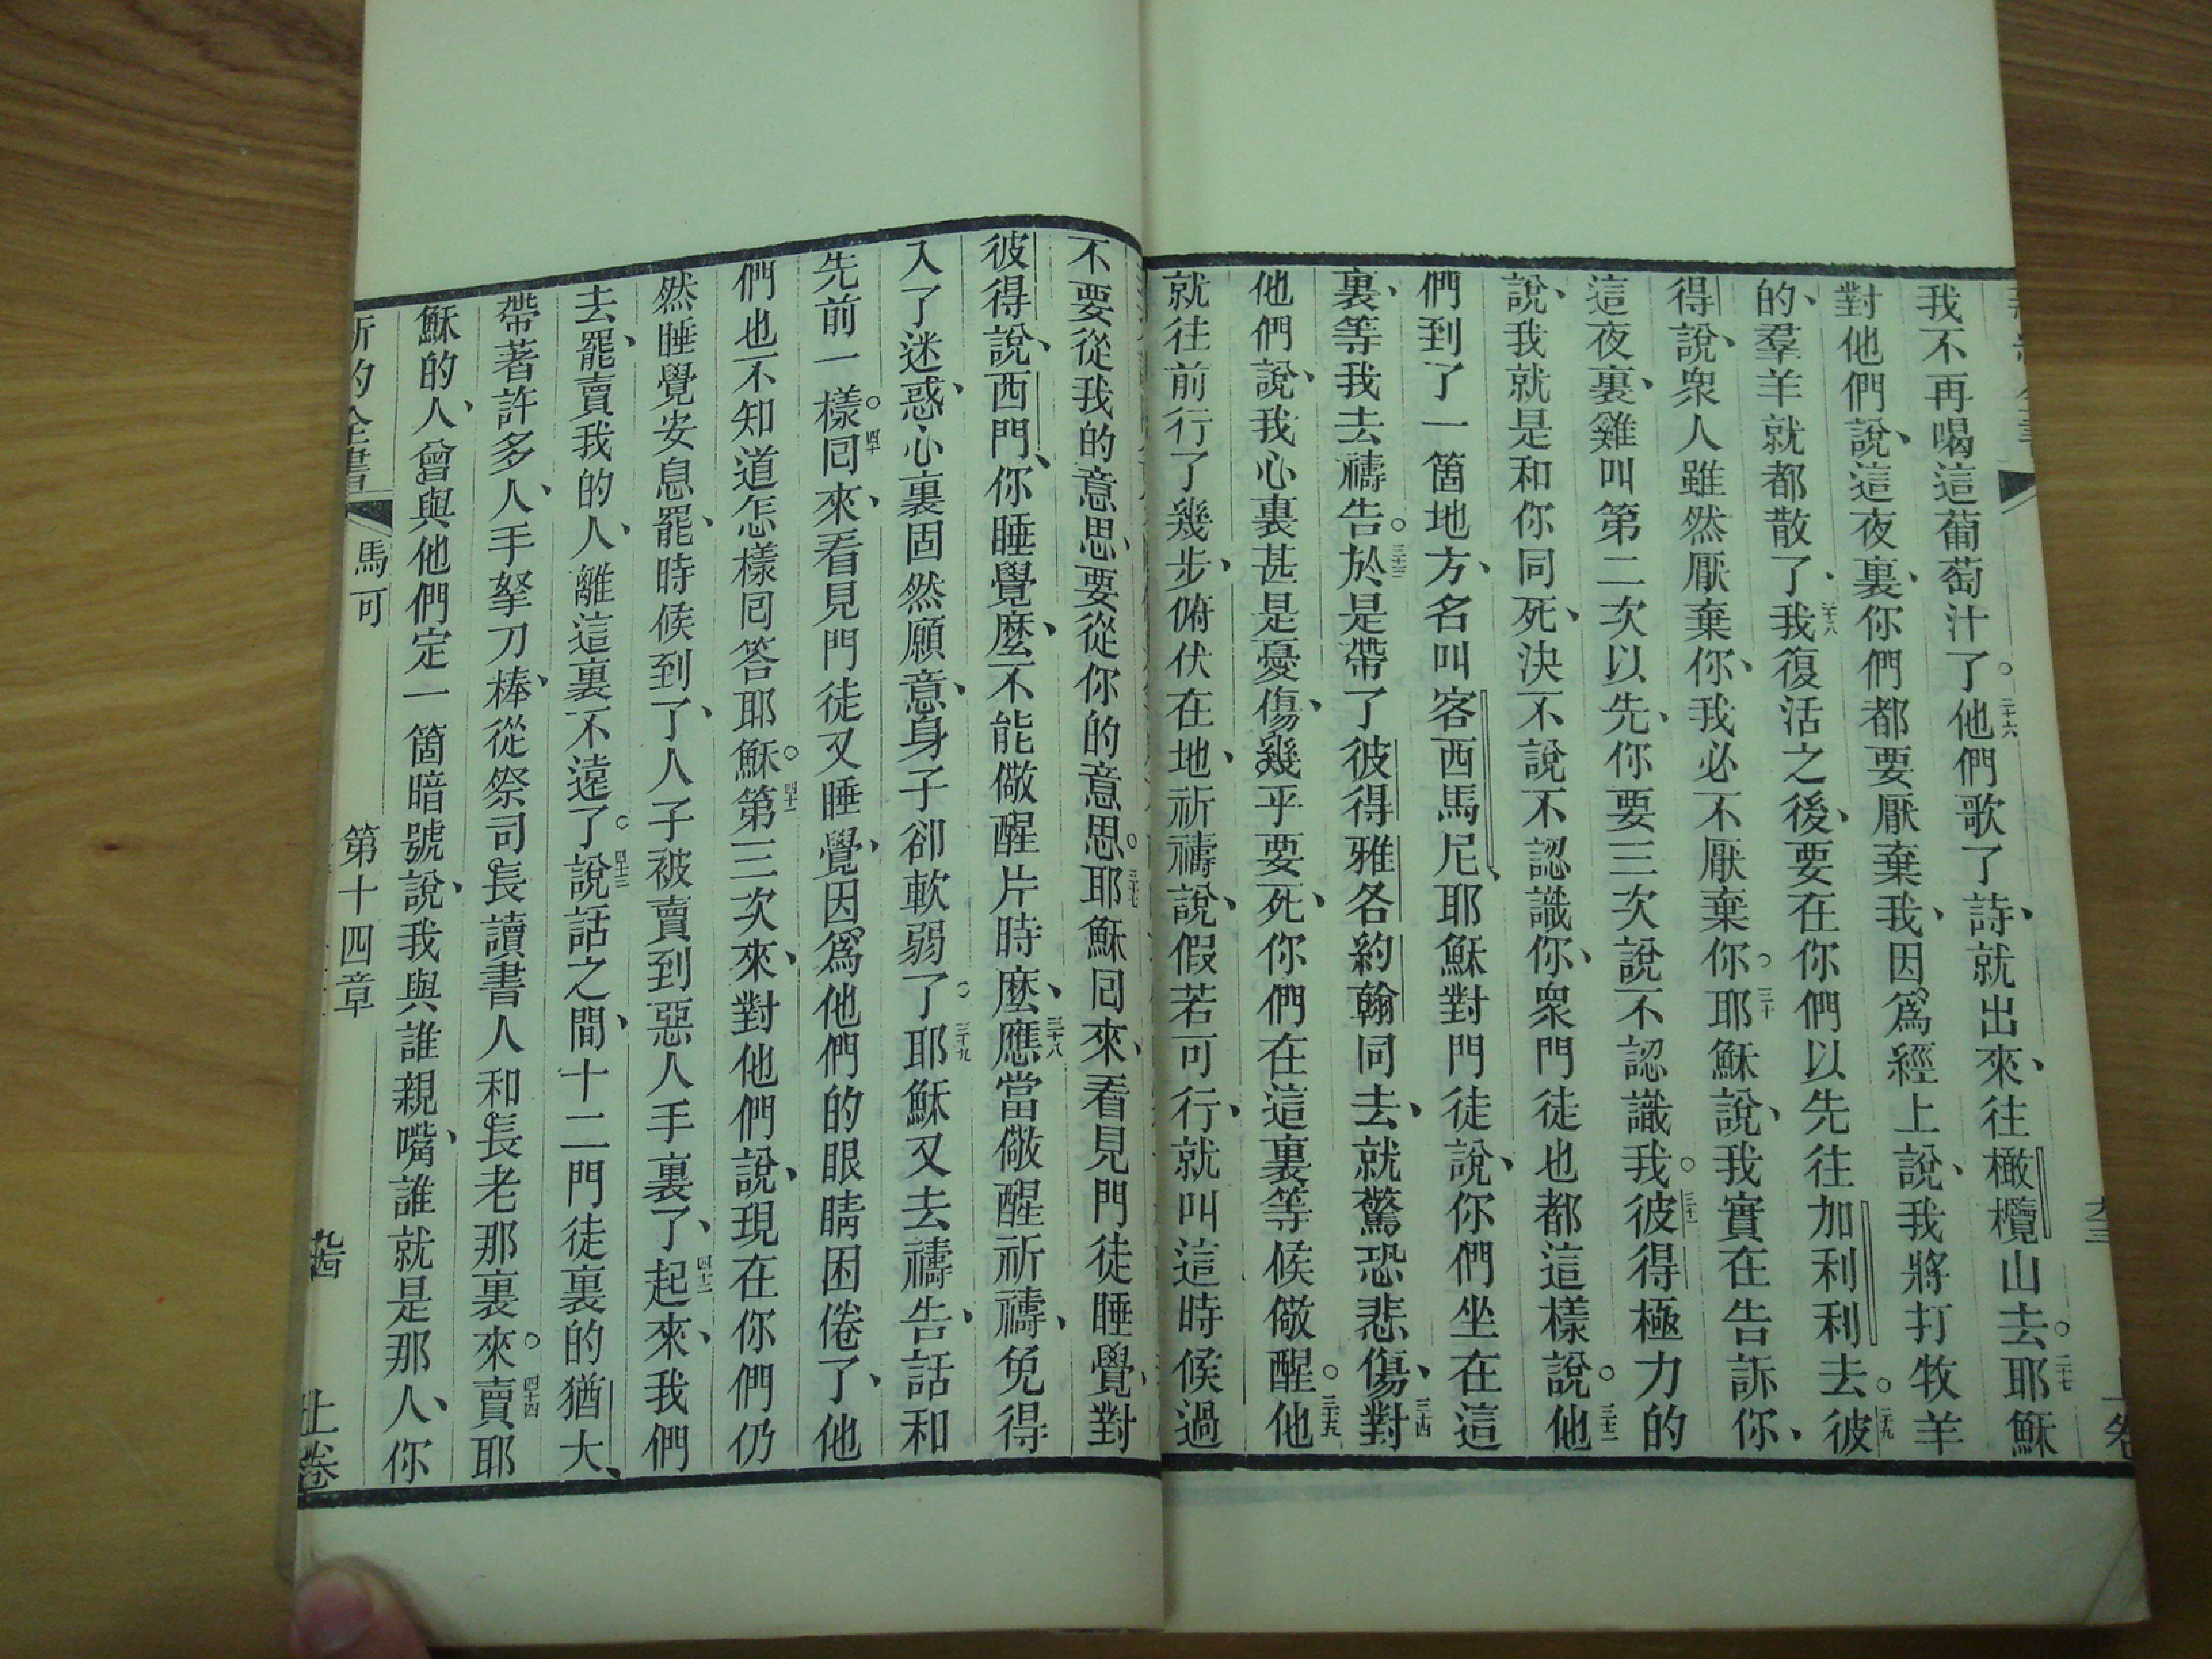 我不再喝這葡萄汁了。二十六他們歌了詩、就出來、往橄欖山去。二十七耶穌
對他們說、這夜裏、你們都要厭棄我、因爲經上說、我將打牧羊
的、羣羊就都散了。二十八我復活之後、要在你們以先往加利利去。二十九彼
得說、衆人雖然厭棄你、我必不厭棄你。三十耶穌說、我實在告訴你、
這夜裏、雞叫第二次以先、你要三次說不認識我。三十一彼得極力的
說、我就是和你同死、決不說不認識你、衆門徒也都這樣說。三十二他
們到了一箇地方、名叫客西馬尼、耶穌對門徒說、你們坐在這
裏、等我去禱告。三十三於是帶了彼得雅各約翰同去、就驚恐悲傷、三十四對
他們說、我心裏甚是憂傷、幾乎要死、你們在這裏等候儆醒。三十五他
就往前行了幾步、俯伏在地、祈禱說、假若可行、就叫這時候過
不要從我的意思、要從你的意思。三十七耶穌回來、看見門徒睡覺、對
彼得說、西門、你睡覺麽、不能儆醒片時麽、三十八應當儆醒祈禱、免得
入了迷惑、心裏固然願意、身子卻軟弱了。三十九耶穌又去禱告、話和
先前一樣。四十回來、看見門徒又睡覺、因爲他們的眼睛困倦了、他
們也不知道怎樣回答耶穌。四十一第三次來、對他們說、現在你們仍
然睡覺安息罷、時候到了、人子被賣到惡人手裏了、四十二起來、我們
去罷、賣我的人、離這裏不遠了。四十三說話之間、十二門徒裏的猶大、
帶著許多人、手拏刀棒、從祭司長讀書人和長老那裏來。四十四賣耶
穌的人、曾與他們定一箇暗號、說、我與誰親嘴、誰就是那人、你
馬可
第十四章
九十四
上卷